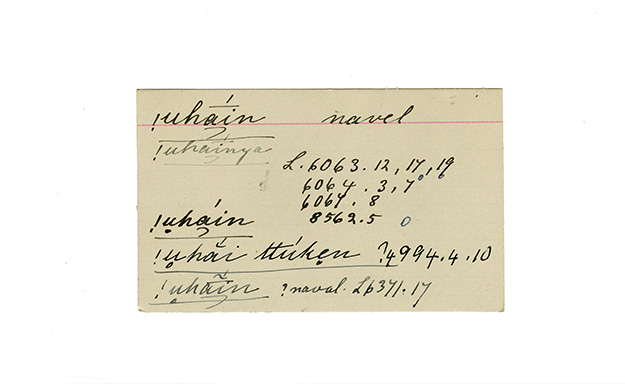 !uháin navel
!uháinya
L. 6063. 12, 17, 19
6064. 3, 7
6067. 8
!ụháin 8562. 5
!ụhắi ttúkẹn ?4994. 4. 10
!ụhãin ? naval. L6371. 17